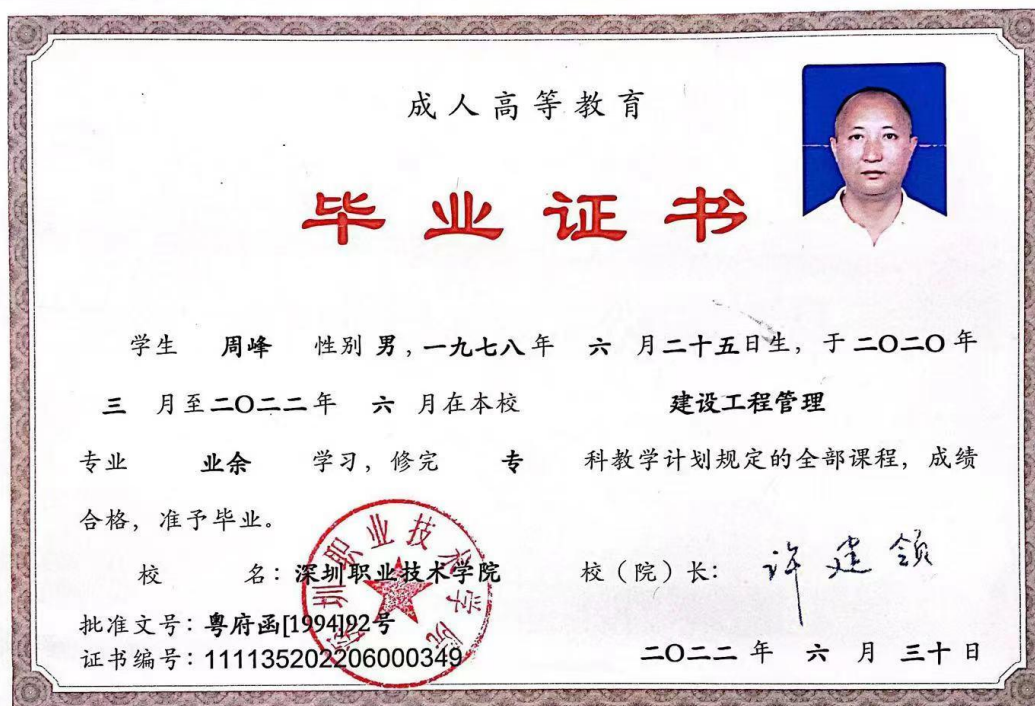 成人高等教育
毕业证书
学生 周峰 性别 男，一九七八年 六 月二十五日生，于二〇二〇年
三 月至二〇二二年 六 月在本校 建设工程管理
专业 业余 学习，修完 专 科教学计划规定的全部课程，成绩
合格，准予毕业。
深圳职业技术学院
校 名：深圳职业技术学院 校（院）长：许建领
批准文号：粤府函[1994]92号
证书编号：111135202206000349 二〇二二 年 六 月 三十 日